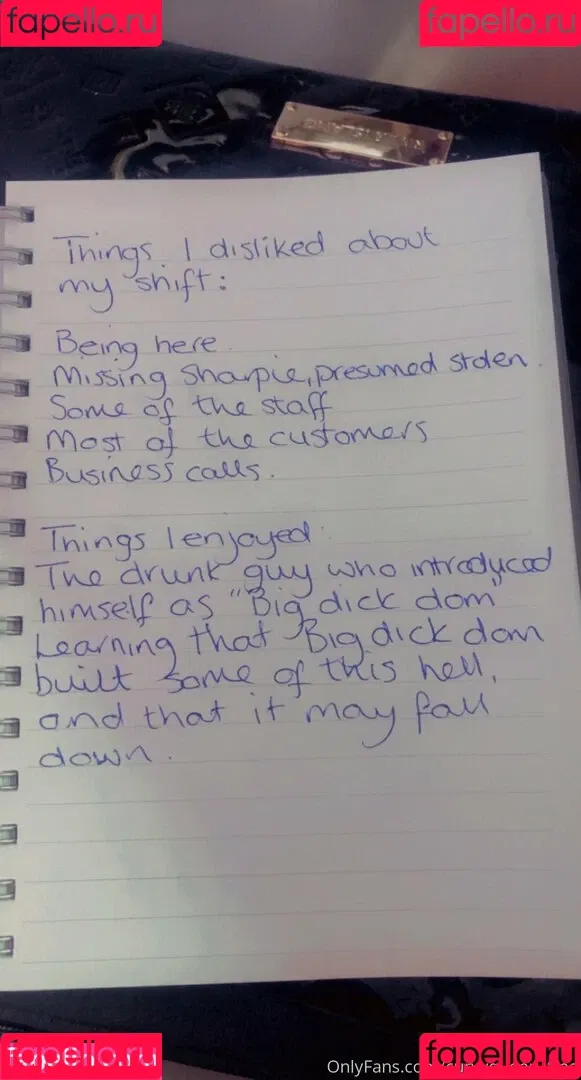 fapello.ru fapello.ru
Things I disliked about
my shift:
Being here.
Missing Sharpie, presumed stolen.
Some of the staff
Most of the customers
Business calls.
Things I enjoyed:
The drunk guy who introduced
himself as "Big dick dom"
Learning that Big dick dom
built some of this hell,
and that it may fall
down.
fapello.ru fapello.ru